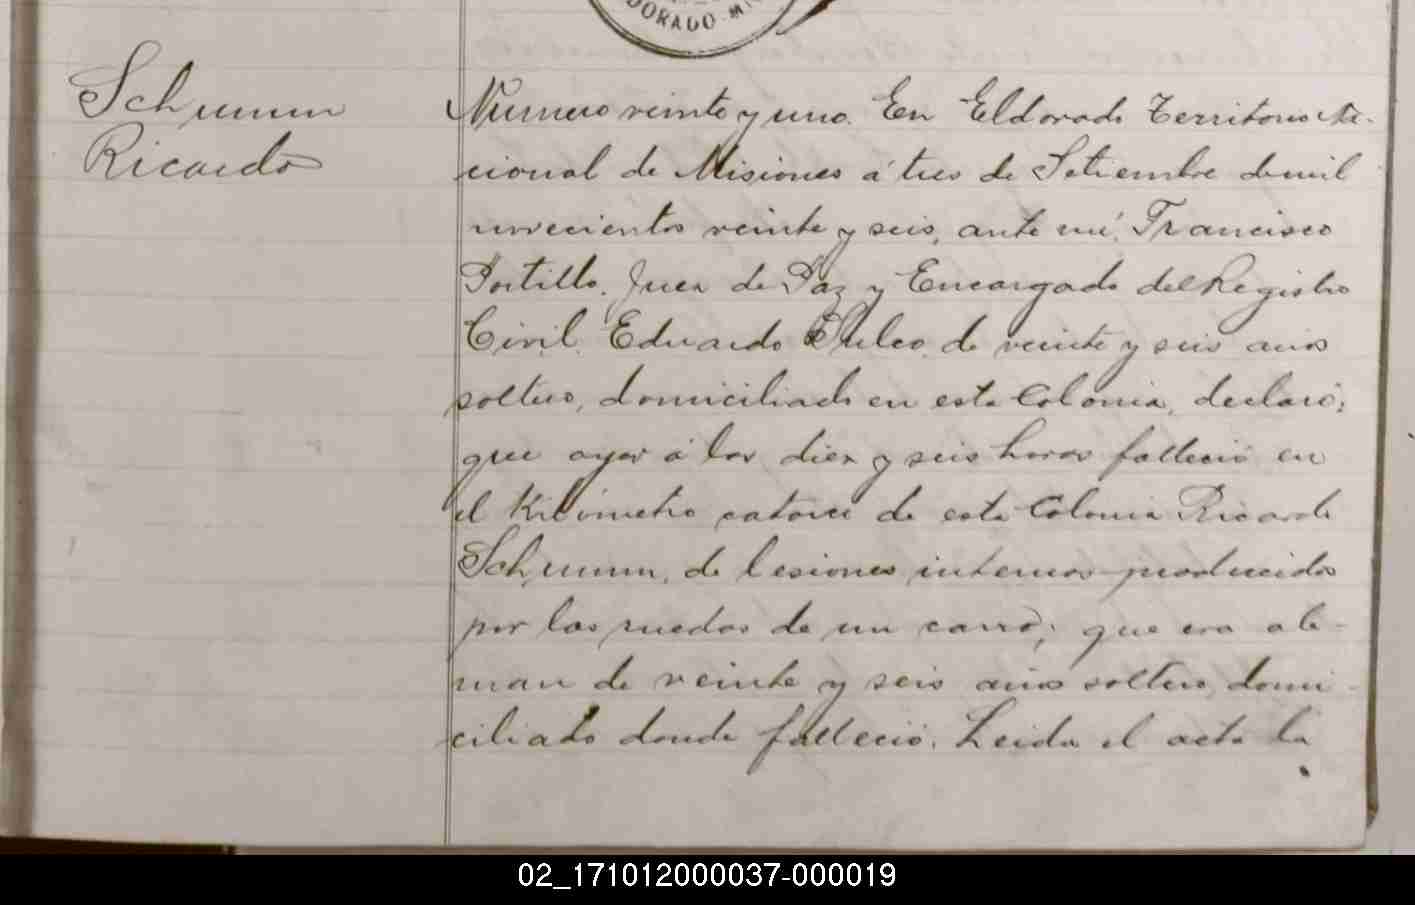 DORADO - MI
Schumm
Ricardo
Numero veinte y uno. En Eldorado Territorio Na-
cional de Misiones á tres de Setiembre de mil
novecientos veinte y seis, ante mí, Francisco
Portillo. Juez de Paz y Encargado del Registro
Civil. Eduardo de veinte y seis años
soltero, domiciliado en esta Colonia, declaró;
que ayer á las diez y seis horas falleció en
el Kilómetro catorce de esta Colonia Ricardo
Schumm, de lesiones internas producidas
por las ruedas de un carro; que era ale-
man de veinte y seis años soltero, domi-
ciliado donde falleció. Leida el acta la
02_171012000037-000019